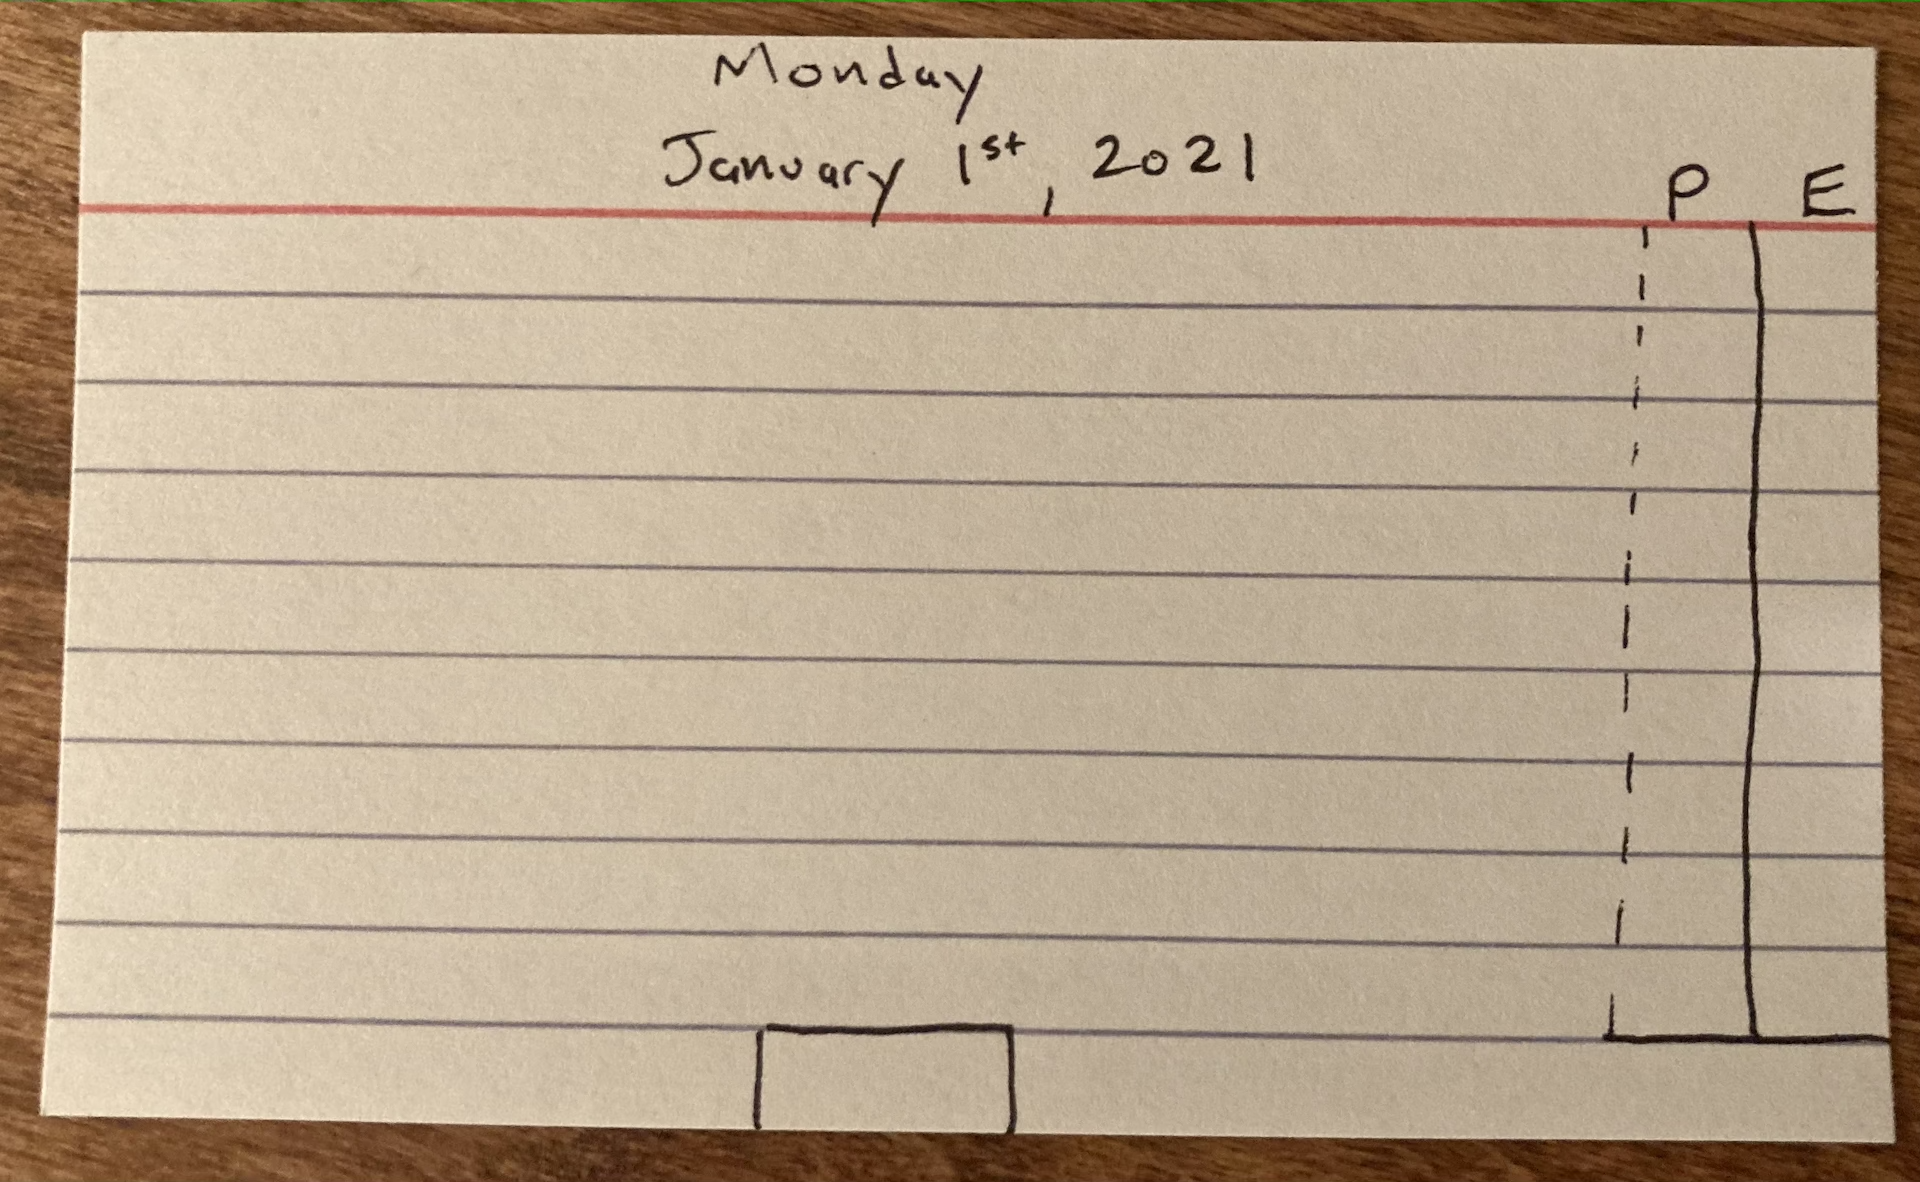 Monday
January 1st, 2021
P E